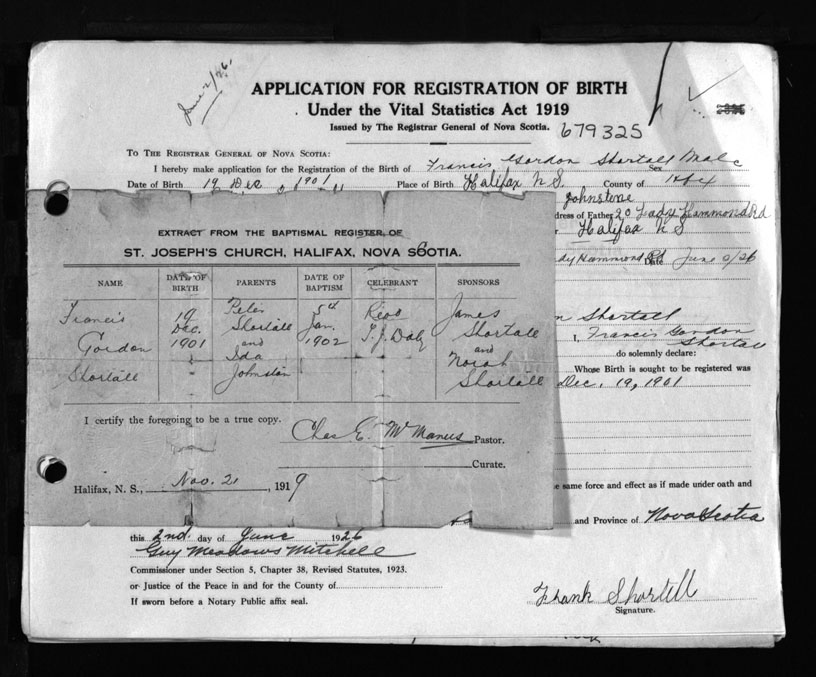 June 2/26.
APPLICATION FOR REGISTRATION OF BIRTH
Under the Vital Statistics Act 1919
Issued by The Registrar General of Nova Scotia. 679325
TO THE REGISTRAR GENERAL OF NOVA SCOTIA:
I hereby make application for the Registration of the Birth of Francis Gordon Shortall Sex Male
Date of Birth 19 Dec 1901 Place of Birth Halifax N.S. County of Hfx
Johnstone
dress of Father 20 Lady Hammond Rd
Halifax N S
dy Hammond Rd Date June 2/26
EXTRACT FROM THE BAPTISMAL REGISTER OF
ST. JOSEPH'S CHURCH, HALIFAX, NOVA SCOTIA.
NAME DATE OF BIRTH PARENTS DATE OF BAPTISM CELEBRANT SPONSORS
Francis 19 Peter 5th Rev. James
Dec. Shortall Jan. T. J. Daly Shortall
Gordon 1901 and 1902 and
Ida Norah
Shortall Johnston Shortall
I certify the foregoing to be a true copy.
Chas E. McManus Pastor.
Curate.
Halifax, N. S., Nov. 21, 1919
n Shortall
I, Francis Gordon
Shortall
do solemnly declare:
Whose Birth is sought to be registered was
Dec. 19, 1901
e same force and effect as if made under oath and
and Province of Nova Scotia
this 2nd. day of June 1926
Guy Meadows Mitchell
Commissioner under Section 5, Chapter 38, Revised Statutes, 1923.
or Justice of the Peace in and for the County of
If sworn before a Notary Public affix seal.
Frank Shortell
Signature.